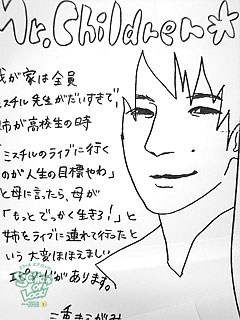 Mr.Children
我が家は全員
ミスチル先生がだいすきで
姉が高校生の時
「ミスチルのライブに行く
のが人生の目標やわ」
と母に言ったら、母が
「もっとでっかく生きろ!」と
姉をライブに連れて行ったと
いう大変ほほえましい
エピソードがあります。
三重